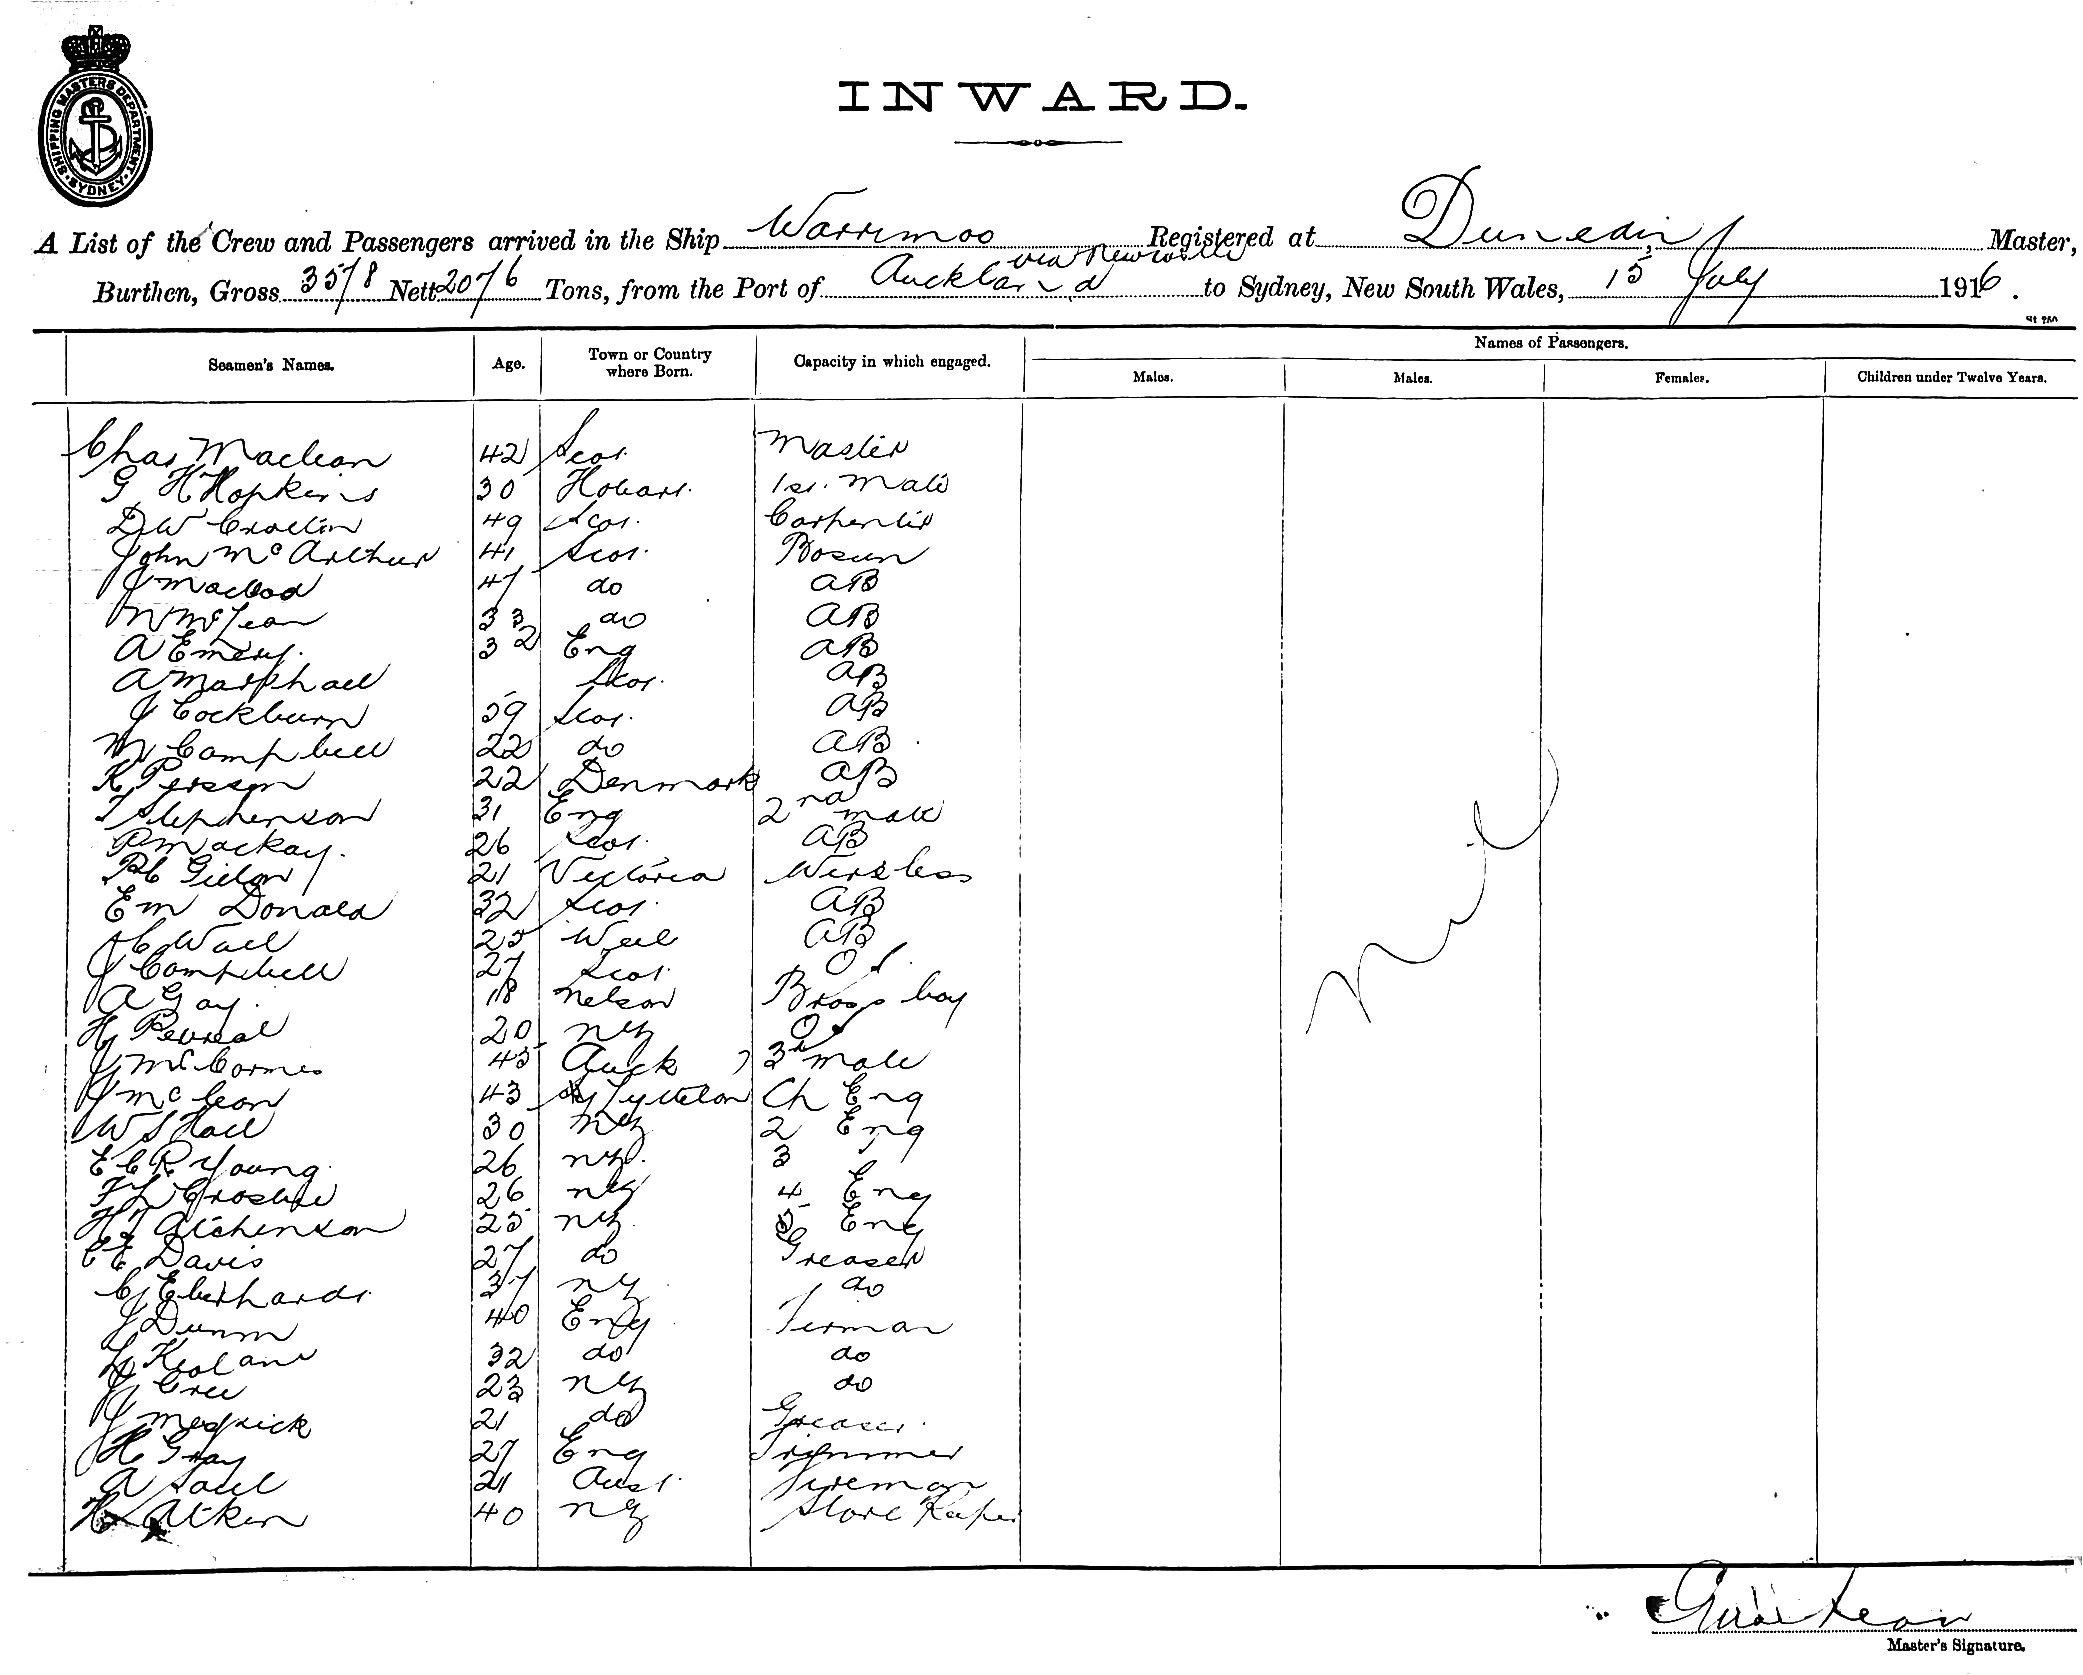 SHIPPING MASTERS DEPARTMENT. SYDNEY
INWARD.
A List of the Crew and Passengers arrived in the Ship Warrimoo Registered at Dunedin, Master,
via Newcastle
Burthen, Gross 3578 Nett 2076 Tons, from the Port of Auckland to Sydney, New South Wales, 15 July 1916.
Seamen's Names. Age. Town or Country where Born. Capacity in which engaged. Names of Passengers.
Males. Males. Females. Children under Twelve Years.
Chas Maclean 42 Scot. Master
G H Hopkins 30 Hobart. 1st. Mate
D W 49 Scot. Carpenter
John McArthur 41 Scot. Bosun
J Macleod 47 do AB
N McLean 33 do AB
A Emery. 32 Eng AB
A Marshall Scot. AB
J Cockburn 59 Scot. AB
M Campbell 22 do AB
K Persson 22 Denmark AB
T Stephenson 31 Eng 2nd mate
R Mackay. 26 Scot. AB
21 Victoria Wireless
E M Donald 32 Scot. AB
C Wall 25 Well AB
J Campbell 27 Scot. OS.
A Gay. 18 Nelson Brass boy
H 20 NZ OS
J McCormes 45 Auck 3rd mate
J McLean 43 Lyttelton Ch Eng
W S Hall 30 NZ 2 Eng
E C R Young. 26 NZ. 3
F L Crosbie 26 NZ 4 Eng
H Aitchenson 25 NZ. 5 Eng
C E Davis 27 do Greaser
C Eberhardt. 37 NZ do
J Dunn 40 Eng Firman
32 do do
J Cree 23 NZ do
J 21 do Greaser.
H Gray 27 Eng Trimmer
A Saul 21 Aust. Fireman
H Aitken 40 NZ Store Keeper
Nil
Master's Signature.